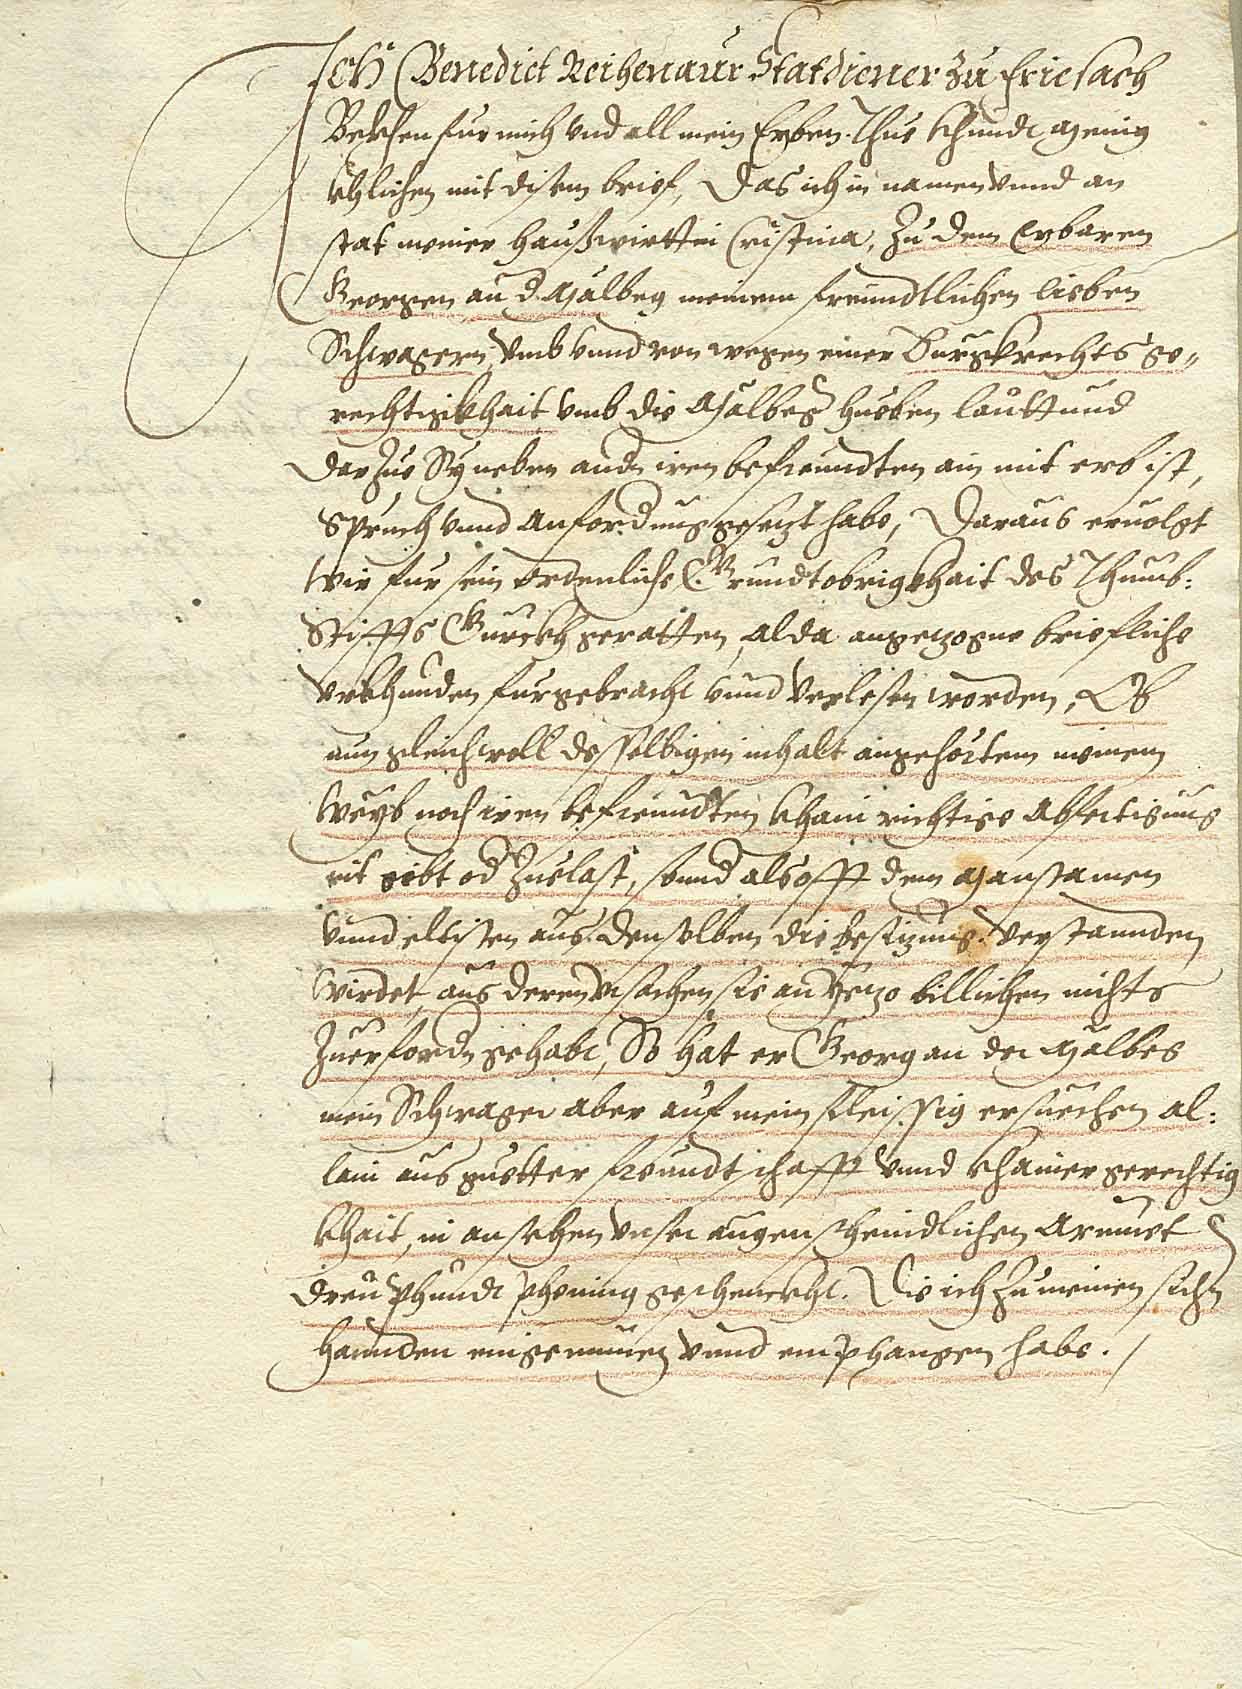 Ich Benedict Reichenaur Statdiener zu Friesach
Bekhen fur mich vnd all mein Erben. Thue khundt menig
khlichen mit disem brief, Das ich in namen vnnd an
stat meiner Haußwirttin Cristina, Zu dem Erbaren
Georgen an d. Mälbeg meinem freundtlichen lieben
Schwagern, vmb vnnd von wegen einer Burgkrechts ge„
rechtigkhait vmb die Mälbeg hueben lautt vnnd
darzue Sy neben andn iren befreundten ain mit erb ist,
Spruch vnnd Anfordnung gesezt habe, Daraus eruolgt
wir fur sein ordenliche Grundtobrigkhait des Thumb:
Stiffts Gurckh geratten, alda angezogne briefliche
vrkhunden furgebracht vnnd verlesen worden, Ob
nun gleichwoll desselbigen inhalt angehörtem meinem
Weyb noch iren befreundten khain richtige Abfertigung
nit gibt od Zuelast, sonnd als offt dem Manstamen
vnnd eltisten aus denselben die besizung verstannden
wirdet, aus deren vrsachen sie an yezo billichen nichts
Zuerfordn gehabt, So hat er Georg an der Mälbeg
mein Schwager aber auf mein fleissig ersuechen al:
lain aus guetter freundtschafft vnnd khainer gerechtig
khait, in ansehen vnser augenscheindlichen Armuet
dreu Phundt Phening geschenckht. Die ich zu meinen sichn
hannden eingenumen vnnd emphangen habe. /